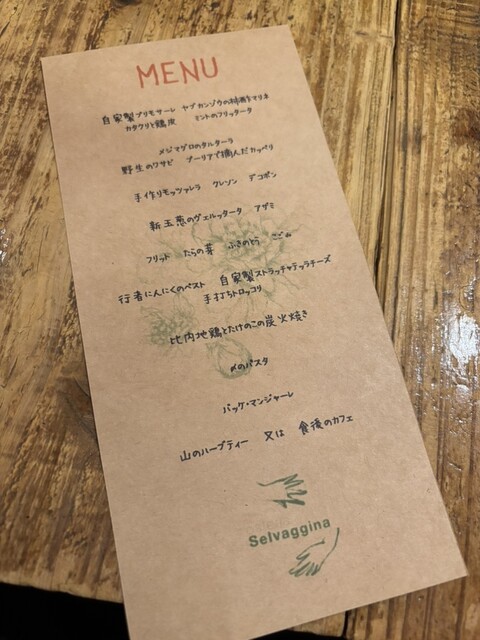 MENU
自家製プリモサーレ ヤブカンゾウの柿酢マリネ
カタクリと鶏皮 ミントのフリッタータ
メジマグロのタルターラ
野生のワサビ プーリアで摘んだカッペリ
手作りモッツァレラ クレソン デコポン
新玉葱のヴェルッタータ アザミ
フリット たらの芽 ふきのとう ごぼう
行者にんにくのペスト 自家製ストラッチャテッラチーズ
手打ちトロッコリ
比内地鶏とたけのこの炭火焼き
〆のパスタ
バッケ・マンジャーレ
山のハーブティー 又は 食後のカフェ
Selvaggina